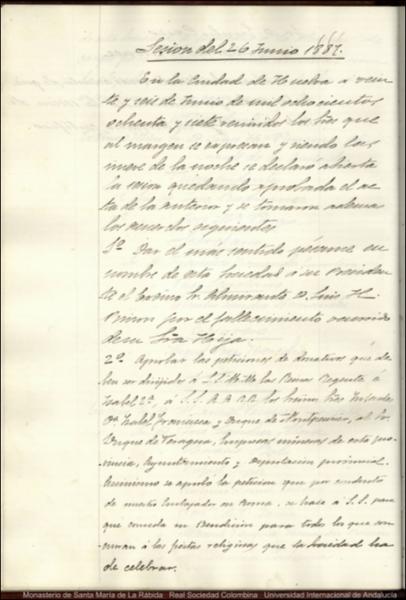 Sesion del 26 Junio 1887.
En la Ciudad de Huelva a vein
te y seis de Junio de mil ochocientos
ochenta y siete reunidos los Sres que
al margen se expresan y siendo las
nueve de la noche se declaró abierta
la sesion quedando aprobada el ac
ta de la anterior y se tomaron ademas
los acuerdos siguientes
1º Dar el mas sentido pésame en
nombre de esta Sociedad á su Presiden
te el Excmo Sr. Almirante D. Luis H.
Pinzon por el fallecimiento ocurrido
de su Sra Hija.
2º Aprobar las peticiones de donativos que de
ben ser dirijidos á S.S. M.M. las Reinas Regente é
Isabel 2ª, á S.S. A.A. R.R. los Srmos Sres Infantes
Dª Isabel, Francisca y Duque de Montpensier, al Sr.
Duque de Veragua, Empresas mineras de esta pro
vincia, Ayuntamiento y Diputacion provincial.
Asimismo se aprobó la peticion que por conducto
de nuestro Embajador en Roma, se hace á S.S. para
que conceda su Bendicion para todos los que con
curran á las fiestas religiosas que la Sociedad ha
de celebrar.
Monasterio de Santa María de La Rábida · Real Sociedad Colombina · Universidad Internacional de Andalucía